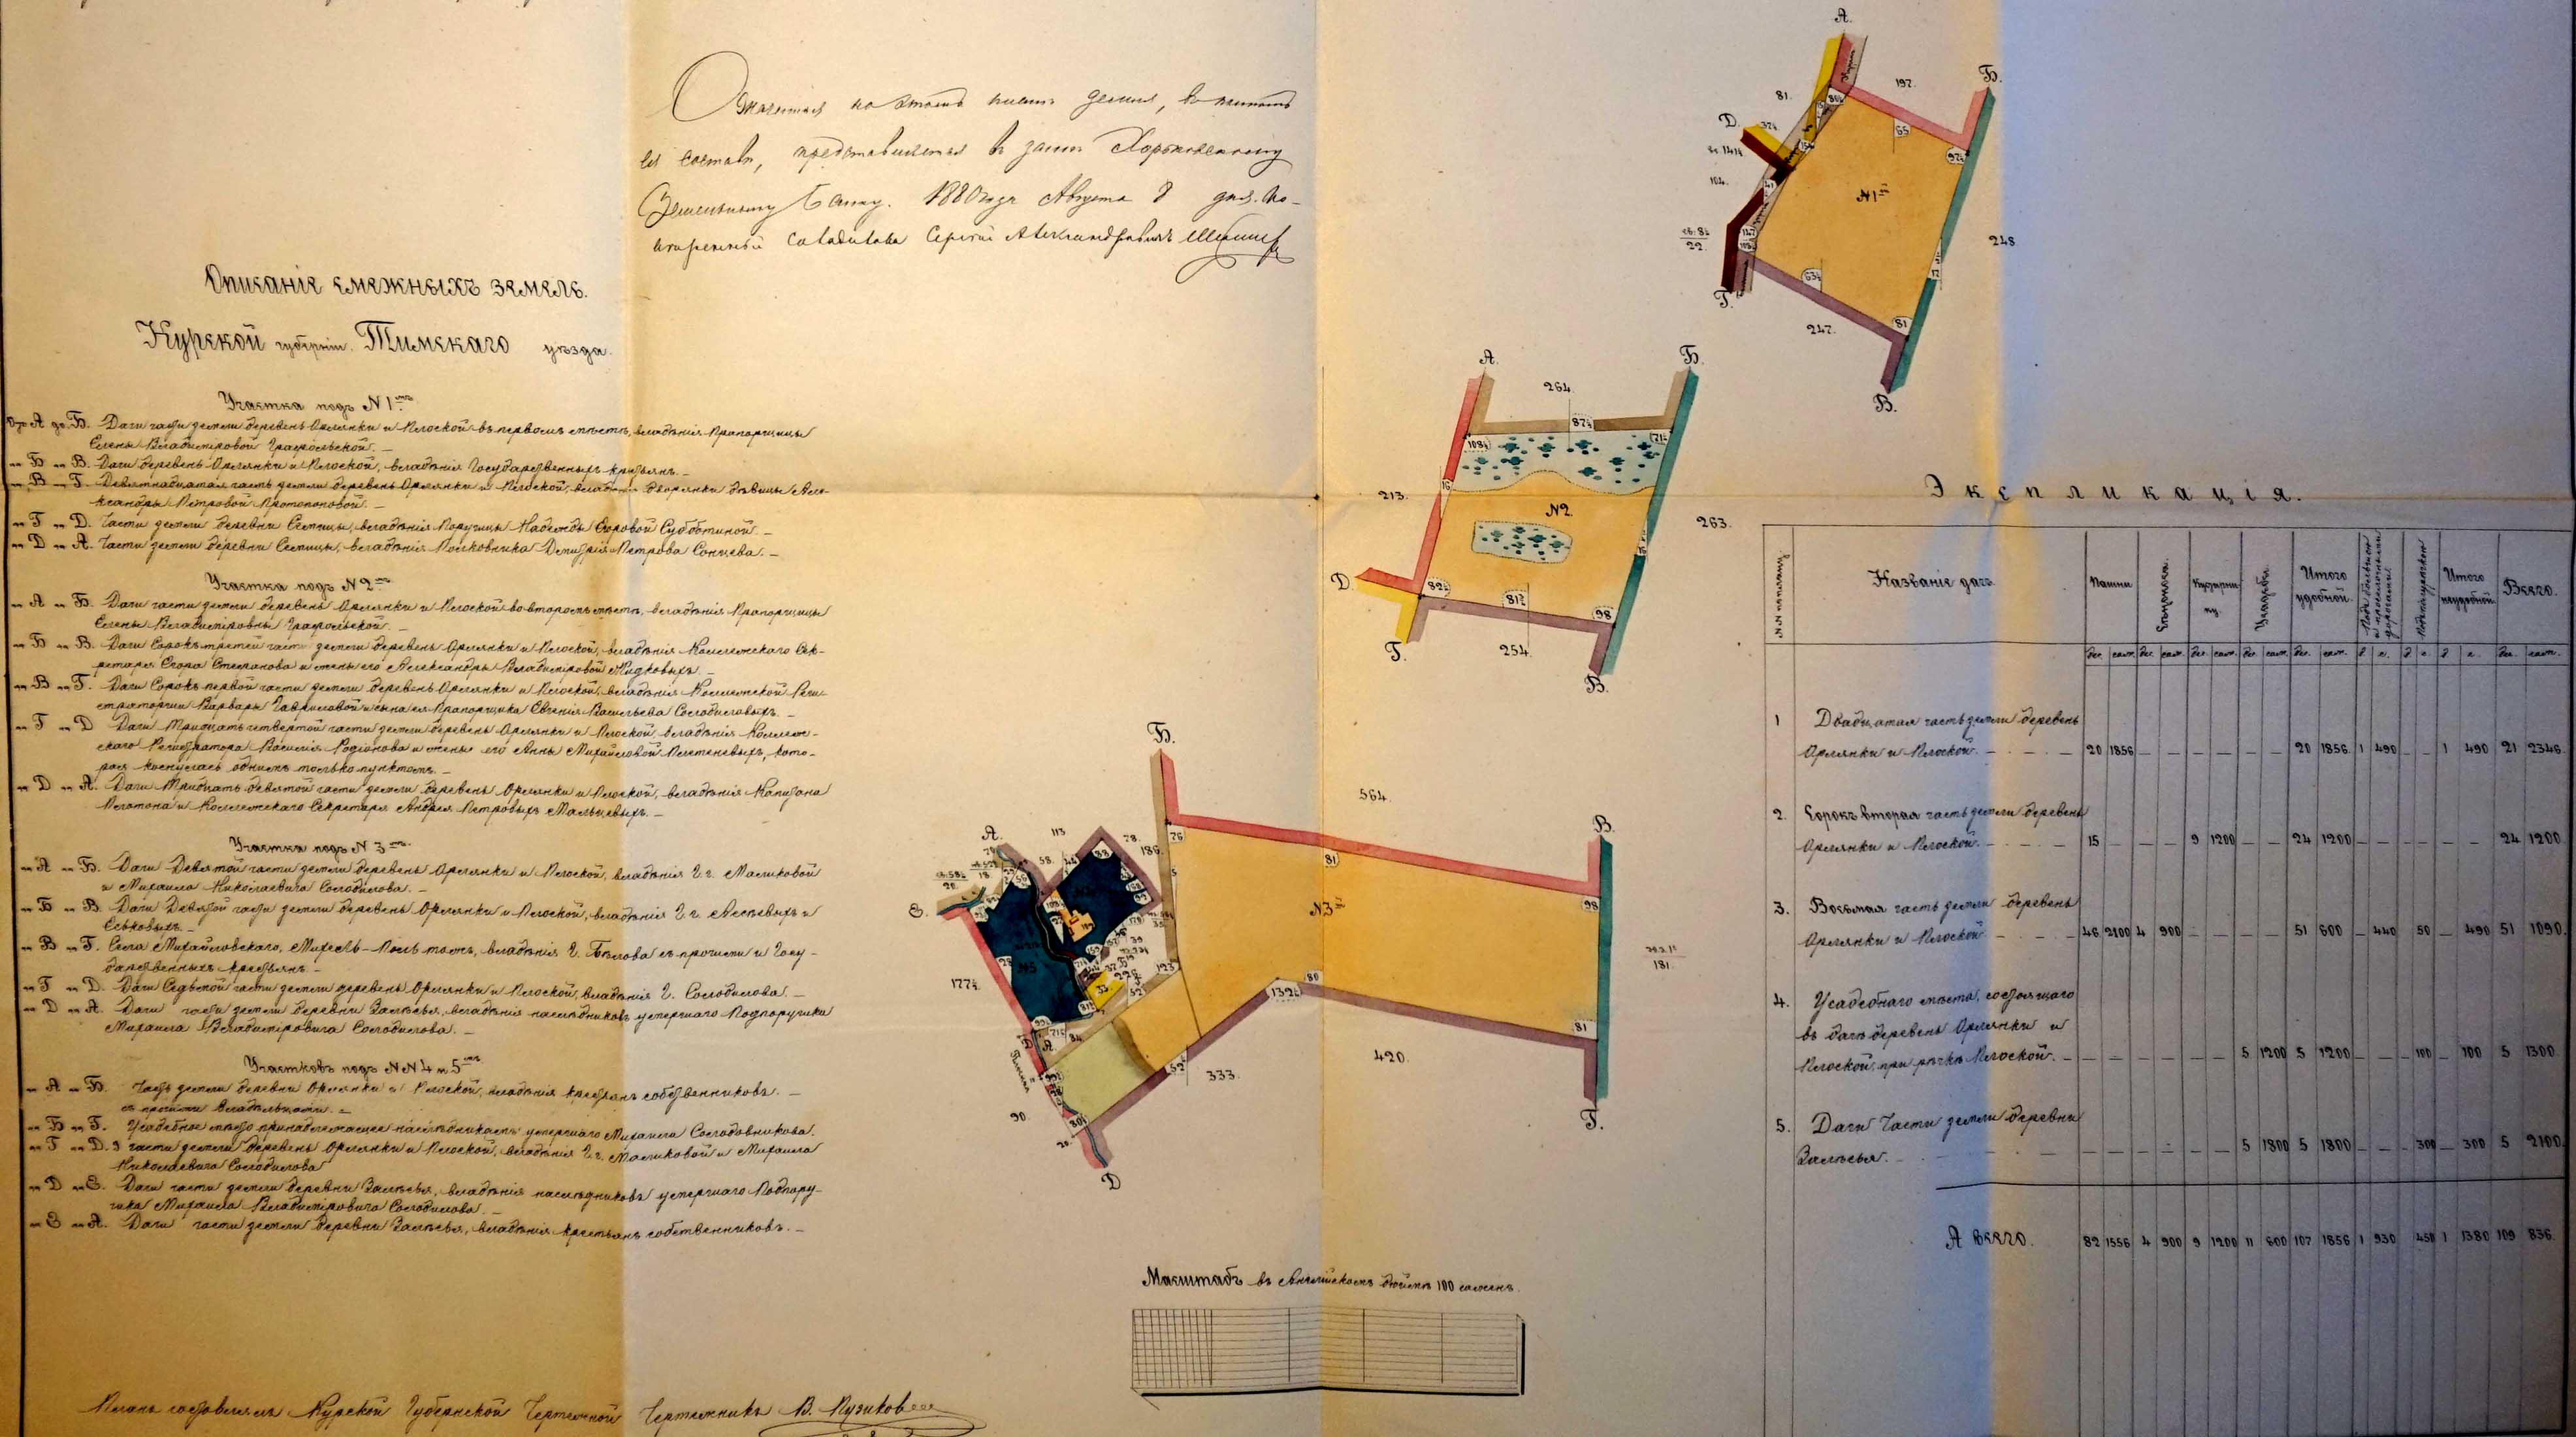 Означенная на этомъ планѣ земля, въ полномъ
ея составѣ, представляется въ залогъ Харьковскому
Земельному Банку. 1880 года Августа 8 дня. По-
вѣренный Солодилова Сергѣй Александровичъ
Описаніе смежныхъ земель.
Курской губерніи Тимскаго уѣзда.
Участка подъ №1мъ
Отъ А до Б. Дачи части земли деревень Орлянки и Плоской въ первомъ мѣстѣ, владѣнія Прапорщицы
Елены Владиміровой
" Б " В. Дачи деревень Орлянки и Плоской, владѣнія Государственныхъ крестьянъ. —
" В " Г. Девятнадцатая часть земли деревень Орлянки и Плоской, владѣнія дворянки дѣвицы Але-
ксандры Петровой Протопоповой. —
" Г " Д. Части земли деревни владѣнія Поручицы Надежды Егоровой Субботиной. —
" Д " А. Части земли деревни владѣнія Полковника Дмитрія Петрова Сонцева. —
Участка подъ №2мъ
" А " Б. Дачи части земли деревень Орлянки и Плоской во второмъ мѣстѣ, владѣнія Прапорщицы
Елены Владиміровны
" Б " В. Дачи Сорокъ третей части земли деревень Орлянки и Плоской, владѣнія Коллежскаго Сек-
ретаря Егора Степанова и жены его Александры Владиміровой
" В " Г. Дачи Сорокъ первой части земли деревень Орлянки и Плоской, владѣнія Коллежской Реги-
страторши Варвары Гавриловой и сына ея Прапорщика Евгенія Васильева Солодиловыхъ. —
" Г " Д Дачи Тридцать четвертой части земли деревень Орлянки и Плоской, владѣнія Коллеж-
скаго Регистратора Василія Родіонова и жены его Анны Михайловой Плетеневыхъ, кото-
рая коснулась однимъ только пунктомъ. —
" Д " А. Дачи Тридцать девятой части земли деревень Орлянки и Плоской, владѣнія Капитана
Платона и Коллежскаго Секретаря Андрея Петровыхъ Мальцевыхъ. —
Участка подъ №3мъ
" А " Б. Дачи Девятой части земли деревень Орлянки и Плоской, владѣнія Г.г. Масликовой
и Михаила Николаевича Солодилова. —
" Б " В. Дачи Девятой части земли деревень Орлянки и Плоской, владѣнія Г.г. и
Еськовыхъ. —
" В " Г. Села Михайловскаго, тожъ, владѣнія Г. Бѣлова съ прочими и Госу-
дарственныхъ крестьянъ. —
" Г " Д. Дачи Седьмой части земли деревень Орлянки и Плоской, владѣнія Г. Солодилова. —
" Д " А. Дачи части земли деревни Залѣсья, владѣнія наслѣдниковъ умершаго Подпоручика
Михаила Владиміровича Солодилова. —
Участковъ подъ №№ 4 и 5мъ
" А " Б. Часть земли деревни Орлянки и Плоской, владѣнія крестьянъ собственниковъ. —
съ прочими владѣльцами. —
" Б " Г. Усадебное мѣсто принадлежащее наслѣдникамъ умершаго Михаила Солодовникова.
" Г " Д. 9 части земли деревень Орлянки и Плоской, владѣнія Г.г. Масликовой и Михаила
Николаевича Солодилова
" Д " Е. Дачи части земли деревни Залѣсья, владѣнія наслѣдниковъ умершаго Подпору-
чика Михаила Владиміровича Солодилова. —
" Е " А. Дачи части земли деревни Залѣсья, владѣнія крестьянъ собственниковъ. —
Планъ составлялъ Курской Губернской Чертежной Чертежникъ В. Пузиков
А.
Б.
81.
197.
Д.
37½
86½
65
92½
104.
№1й
248.
22.
63½
81
Г.
247.
В.
А.
Б.
264.
87½
108½
71½
16
213.
№2.
263.
15
Д.
82½
81½
98
Г.
254.
В.
Б.
564.
В.
А.
113
78.
186.
76
81
58.
98
Е.
№3й
181.
177½
№5
123
80
132½
81
420.
333.
52½
90.
Г.
Д
Масштабъ въ Англійскомъ дюймѣ 100 саженъ.
Экспликація.
№№ по плану
Названіе дачъ.
Пашни
Сѣнокоса.
Кустарни-
ку.
Усадебы
Итого
удобной.
Подъ большою
и проселочными
дорогами
Итого
неудобной.
Всего.
дес. саж. дес. саж. дес. саж. дес. саж. дес. саж. д. с. д. с. д. с. дес. саж.
1 Двадцатая часть земли деревень
Орлянки и Плоской. — 20 1856 — — — — — — 20 1856 1 490 — — 1 490 21 2346.
2. Сорокъ вторая часть земли деревень
Орлянки и Плоской. — 15 — — — 9 1200 — — 24 1200 — — — — — — 24 1200
3. Восьмая часть земли деревень
Орлянки и Плоской — 46 2100 4 900 — — — — 51 600 — 440 50 — 490 51 1090.
4. Усадебнаго мѣста, состоящаго
въ дачѣ деревень Орлянки и
Плоской, при рѣчкѣ Плоской. — — — — — — — 5 1200 5 1200 — — — 100 — 100 5 1300
5. Дачи Части земли деревни
Залѣсья. — — — — — — — 5 1800 5 1800 — — — 300 — 300 5 2100.
А всего. 82 1556 4 900 9 1200 11 600 107 1856 1 930 450 1 1380 109 836.